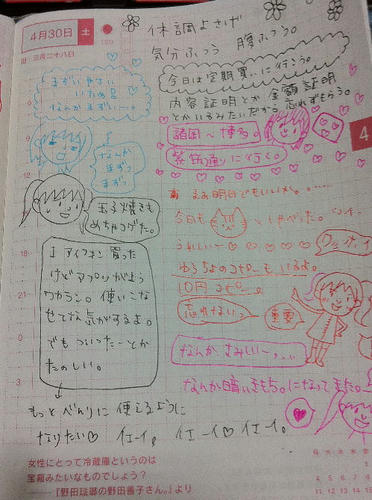 4月30日 土
旧 三月二十八日
体調よさげ
気分ふつう 腹ふつう。
今日は定期買いに行こう。
内容証明とか 金額証明
とかいるみたいだから 忘れずもらう。
諸岡〜博多。
に行く。
まぁ明日でもいいメ。。……
今日も しゃべった。
うれしい〜
わろちょのコピーもいるよ。
10円コピー。
忘れない。
重要
なんか さみしい〜、、、
なんか暗いきもち。になってきた。
まずいやさい
いため食
なんかまずい〜。
なんか
まずっ
まずっ
玉子焼きも
めちゃコゲた。
アイフォン 買った
けどアプリがよう
ワカラン。使いこな
せてな気がするよ。
でも ついったーとか
たのしい。
もっと べんりに 使えるように
なりたい♡ イエーイ。 イエーイ♡ イエーイ。
9
12
18
21
0
3
6
4
女性にとって冷蔵庫というのは
宝箱みたいなものでしょう?
「野田琺瑯の野田善子さん。」より
日 月 火 水 木 金 土